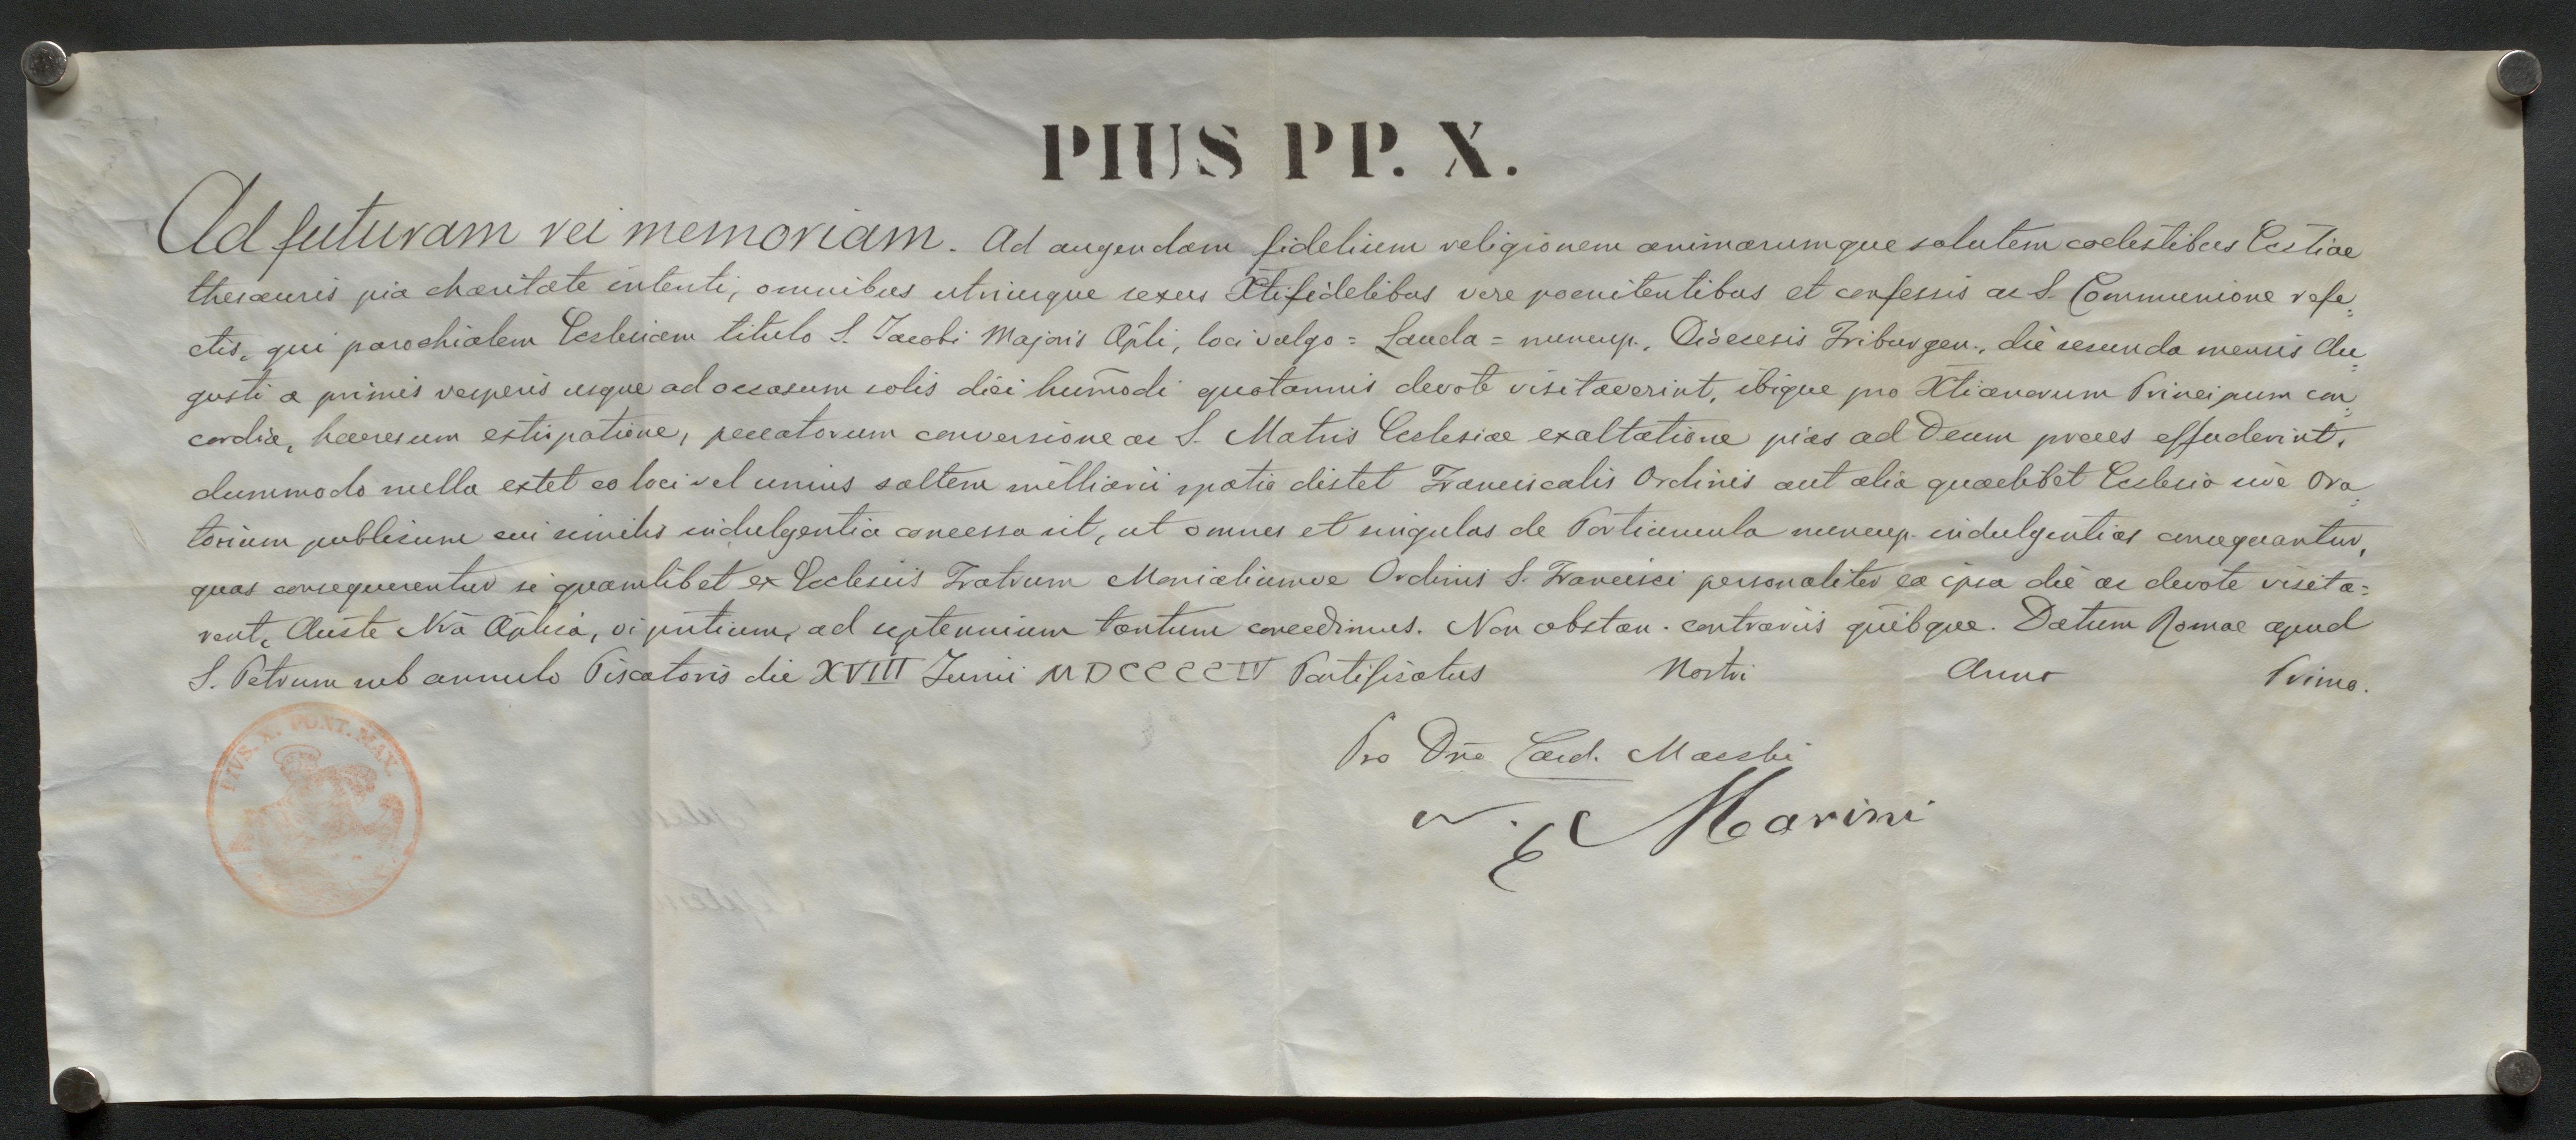 PIUS PP. X.
Ad futuram rei memoriam. Ad augendam fidelium religionem animarumque salutem coelestibus Ecctiae
thesauris pia charitate intenti, omnibus utriusque sexus Xtifidelibus vere poenitentibus et confessis ac S. Communione refe=
ctis, qui parochialem Ecclesiam titulo S. Jacobi Majoris Apli, loci vulgo = Lauda = nuncup., Dioecesis Friburgen., die secunda mensis Au=
gusti a primis vesperis usque ad occasum solis diei humodi quotannis devote visitaverint, ibique pro Xtianorum Principum con=
cordia, haeresum extirpatione, peccatorum conversione ac S. Matris Ecclesiae exaltatione pias ad Deum preces effuderint,
dummodo nulla extet eo loci vel unius saltem milliarii spatio distet Franciscalis Ordinis aut alia quaelibet Ecclesia sive Ora=
torium publicum cui similis indulgentia concessa sit, ut omnes et singulas de Portiuncula nuncup. indulgentias consequantur,
quas consequerentur si quamlibet ex Ecclesiis Fratrum Monialiumve Ordinis S. Francisci personaliter ea ipsa die ac devote visita=
rent, Auste Nra Aplica, vi pntium, ad septennium tantum concedimus. Non obstan. contrariis quibque. Datum Romae apud
S. Petrum sub annulo Piscatoris die XVIII Junii MDCCCCIV Pontificatus Nostri Anno Primo.
Pro Dno Card. Macchi
N. Marini
PIVS. X. PONT. MAX.